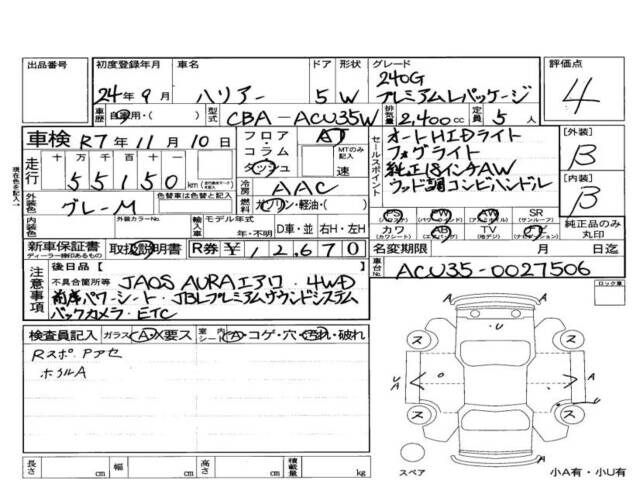 出品番号
初度登録年月 車名 ドア 形状 グレード 評価点
24年9月 ハリアー 5 W 240G プレミアムLパッケージ 4
車歴 自家用・( ) 型式 CBA-ACU35W 排気量 2,400cc 定員 5人
車検 R7年11月10日
フロア・コラム ダッシュ AT MTのみ記入 速
セールスポイント
オートHIDライト
フォグライト
純正18インチAW
ウッド調コンビハンドル
[外装] B
[内装] B
走行 十万 万 千 百 十 55150 km
現在色を記入
外装色 グレーM 色替車は色替前( )
内装色 外装カラーNo.
冷房 AAC
燃料 ガソリン・軽油・( )
PS PW AW SR
(パワステ) (パワーウィンド) (アルミホイル) (サンルーフ)
カワ AB TV ナビ
(カワシート) (エアバッグ) (地デジ)
純正品のみ丸印
輸入車 モデル年式 年・不明 D車・並 右H・左H
新車保証書 取扱説明書 R券 ¥12,670
ディーラー捺印あるもの
名変期限 月 日迄
車台No. ACU35-0027506
注意事項
後日品[ ]
不具合箇所等 JAOS AURAエアロ・4WD
前席パワーシート・JBLプレミアムサウンドシステム
バックカメラ・ETC
ロック車
検査員記入 ガラス A・X要ス 室内 シート A・コゲ・穴・汚れ・破れ
Rスポ Pアセ
ホイルA
U
ス ス
A U A
ス ス
U
A
スペア
小A有・小U有
長さ cm 幅 cm 高さ cm 積載量 kg